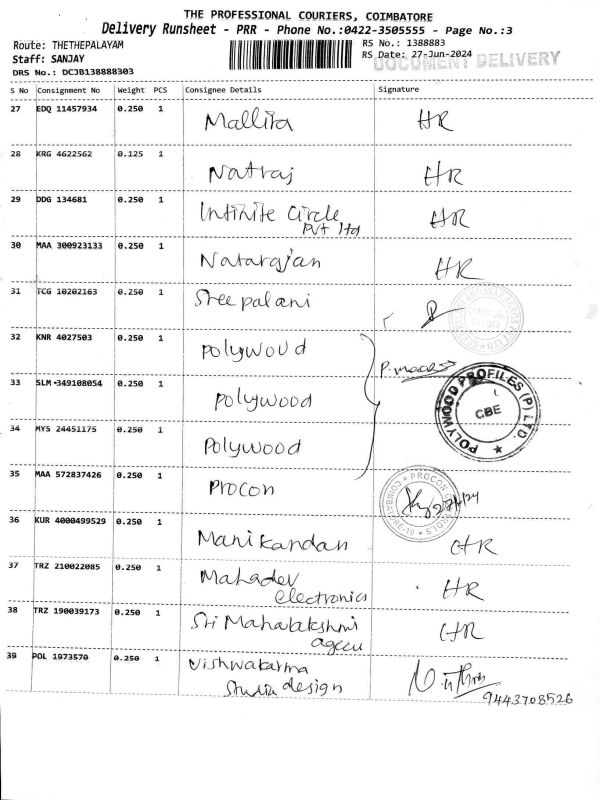 THE PROFESSIONAL COURIERS, COIMBATORE
Delivery Runsheet - PRR - Phone No.:0422-3505555 - Page No.:3
Route: THETHEPALAYAM
RS No.: 1388883
Staff: SANJAY
RS Date: 27-Jun-2024
DOCUMENT DELIVERY
DRS No.: DCJB138888303
S No Consignment No Weight PCS Consignee Details Signature
27 EDQ 11457934 0.250 1 Mallira HR
28 KRG 4622562 0.125 1 Natraj HR
29 DDG 134681 0.250 1 Infinite Circle HR
Pvt ltd
30 MAA 300923133 0.250 1 Natarajan HR
31 TCG 10202163 0.250 1 Sree palani
32 KNR 4027503 0.250 1 Polywood
P.
33 SLM 349108054 0.250 1 Polywood
POLYWOOD PROFILES (P) LTD.
CBE
34 MYS 24451175 0.250 1 Polywood
35 MAA 572837426 0.250 1 Procon
27/6/24
36 KUR 4000499529 0.250 1 Manikandan HR
37 TRZ 210022085 0.250 1 Mahadev HR
electronics
38 TRZ 190039173 0.250 1 Sri Mahalakshmi HR
39 POL 1973570 0.250 1 Vishwakarma
Studio design
9443708526